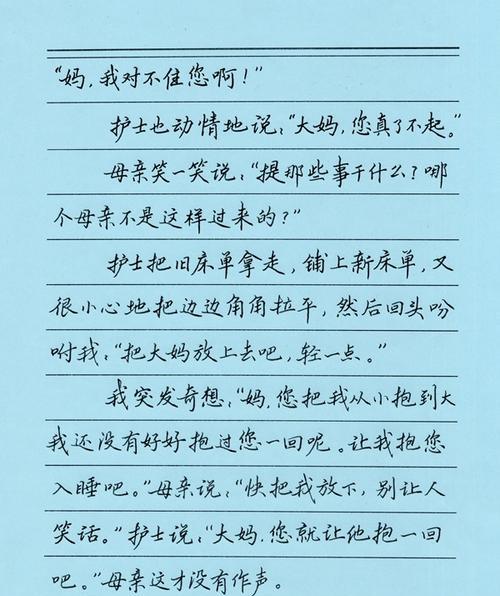 “妈，我对不住您啊！”
护士也动情地说：“大妈，您真了不起。”
母亲笑一笑说：“提那些事干什么？哪
个母亲不是这样过来的？”
护士把旧床单拿走，铺上新床单，又
很小心地把边边角角拉平，然后回头吩
咐我：“把大妈放上去吧，轻一点。”
我突发奇想：“妈，您把我从小抱到大
我还没有好好抱过您一回呢。让我抱您
入睡吧。”母亲说：“快把我放下，别让人
笑话。”护士说：“大妈，您就让他抱一回
吧。”母亲这才没有作声。